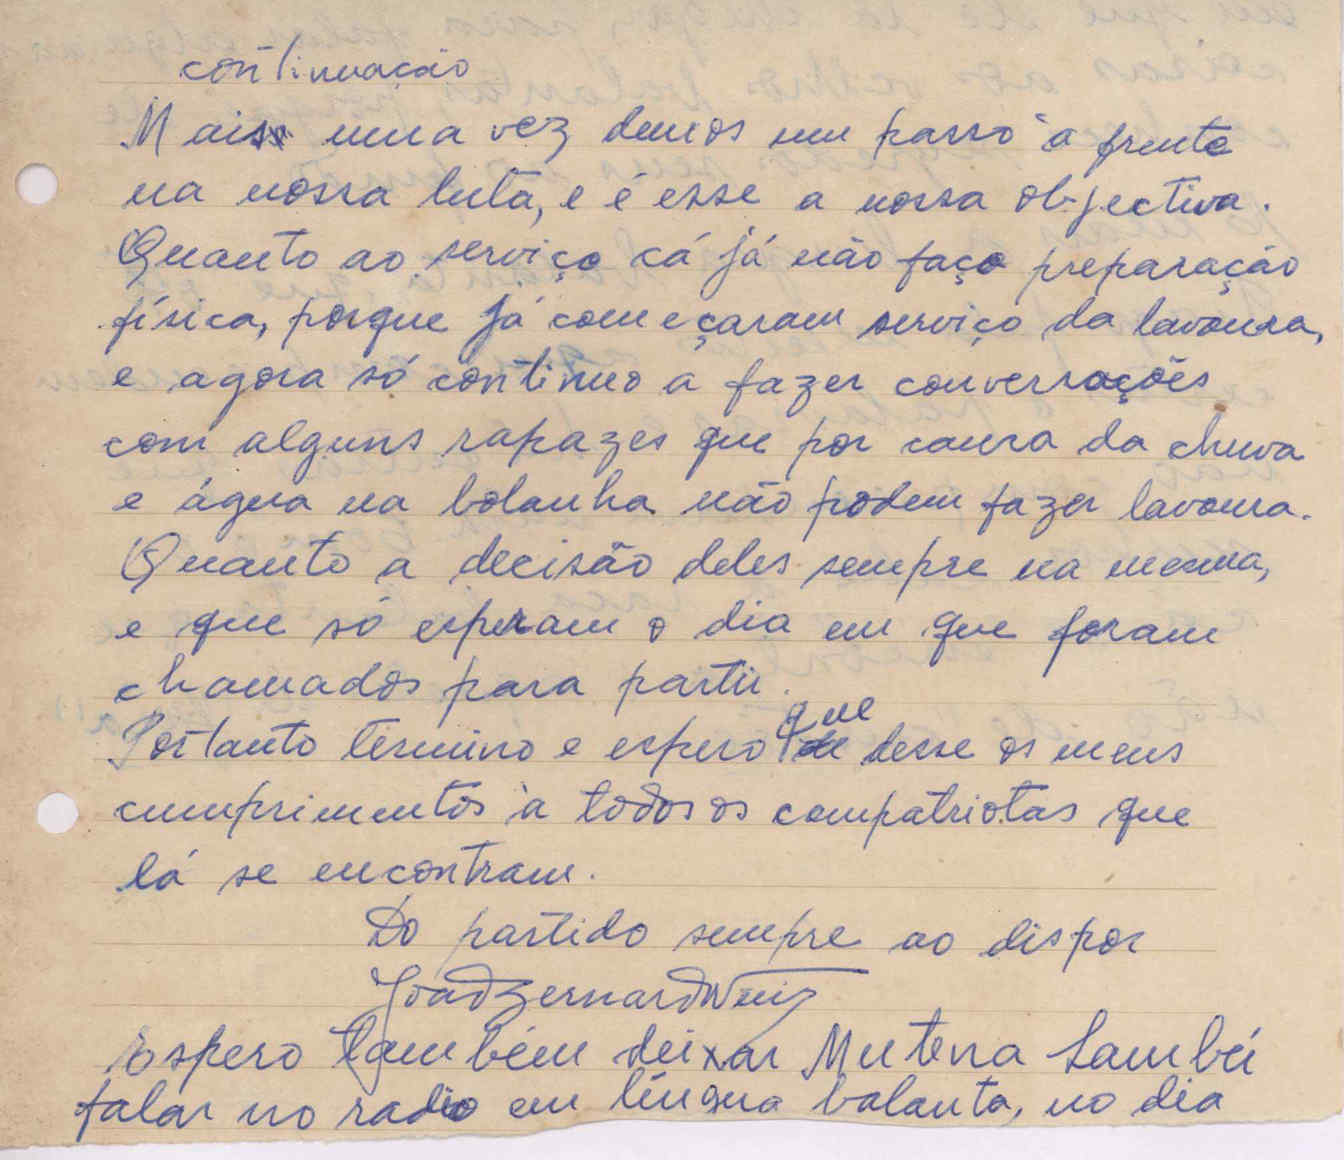 continuação
Mais uma vez demos um passo à frente
na nossa luta, e é esse a nossa objectiva.
Quanto ao serviço cá já não faço preparação
física, porque já começaram serviço da lavoura,
e agora só continuo a fazer conversações
com alguns rapazes que por causa da chuva
e água na bolanha não podem fazer lavoura.
Quanto a decisão deles sempre na mesma,
e que só esperam o dia em que foram
chamados para partir.
Portanto termino e espero que desse os meus
cumprimentos à todos os compatriotas que
lá se encontram.
Do partido sempre ao dispor
João Bernardo
Espero também deixar Mutna Sambú
falar no radio em língua balanta, no dia